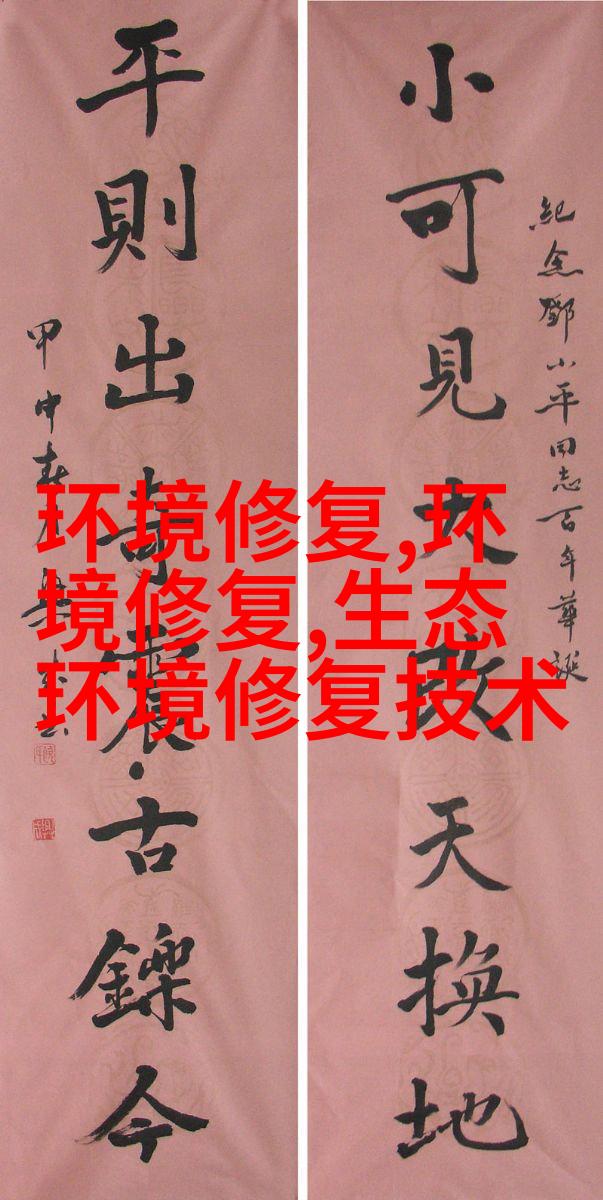 紀念鄧小平同志百年華誕
小可見大改天換地
平則出奇震古鑠今
甲申春
环境修复,环
境修复,生态
环境修复技术